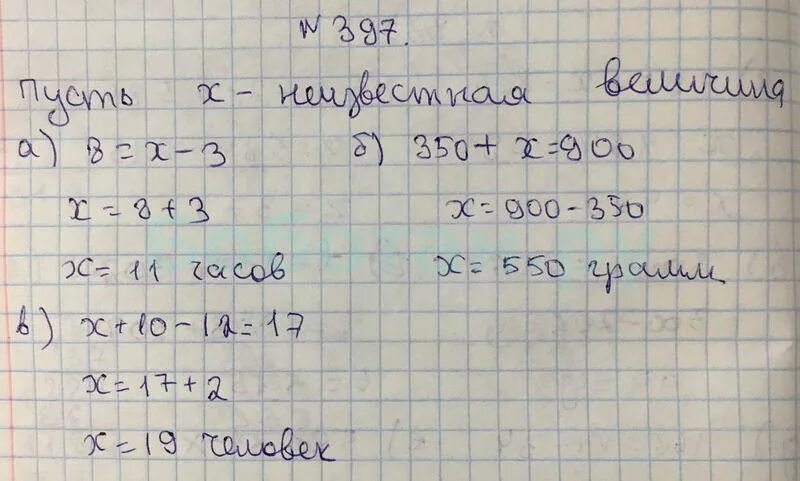 № 397.
Пусть х - неизвестная величина
а) 8 = х - 3
х = 8 + 3
х = 11 часов
б) 350 + х = 900
х = 900 - 350
х = 550 грамм
в) х + 10 - 12 = 17
х = 17 + 2
х = 19 человек